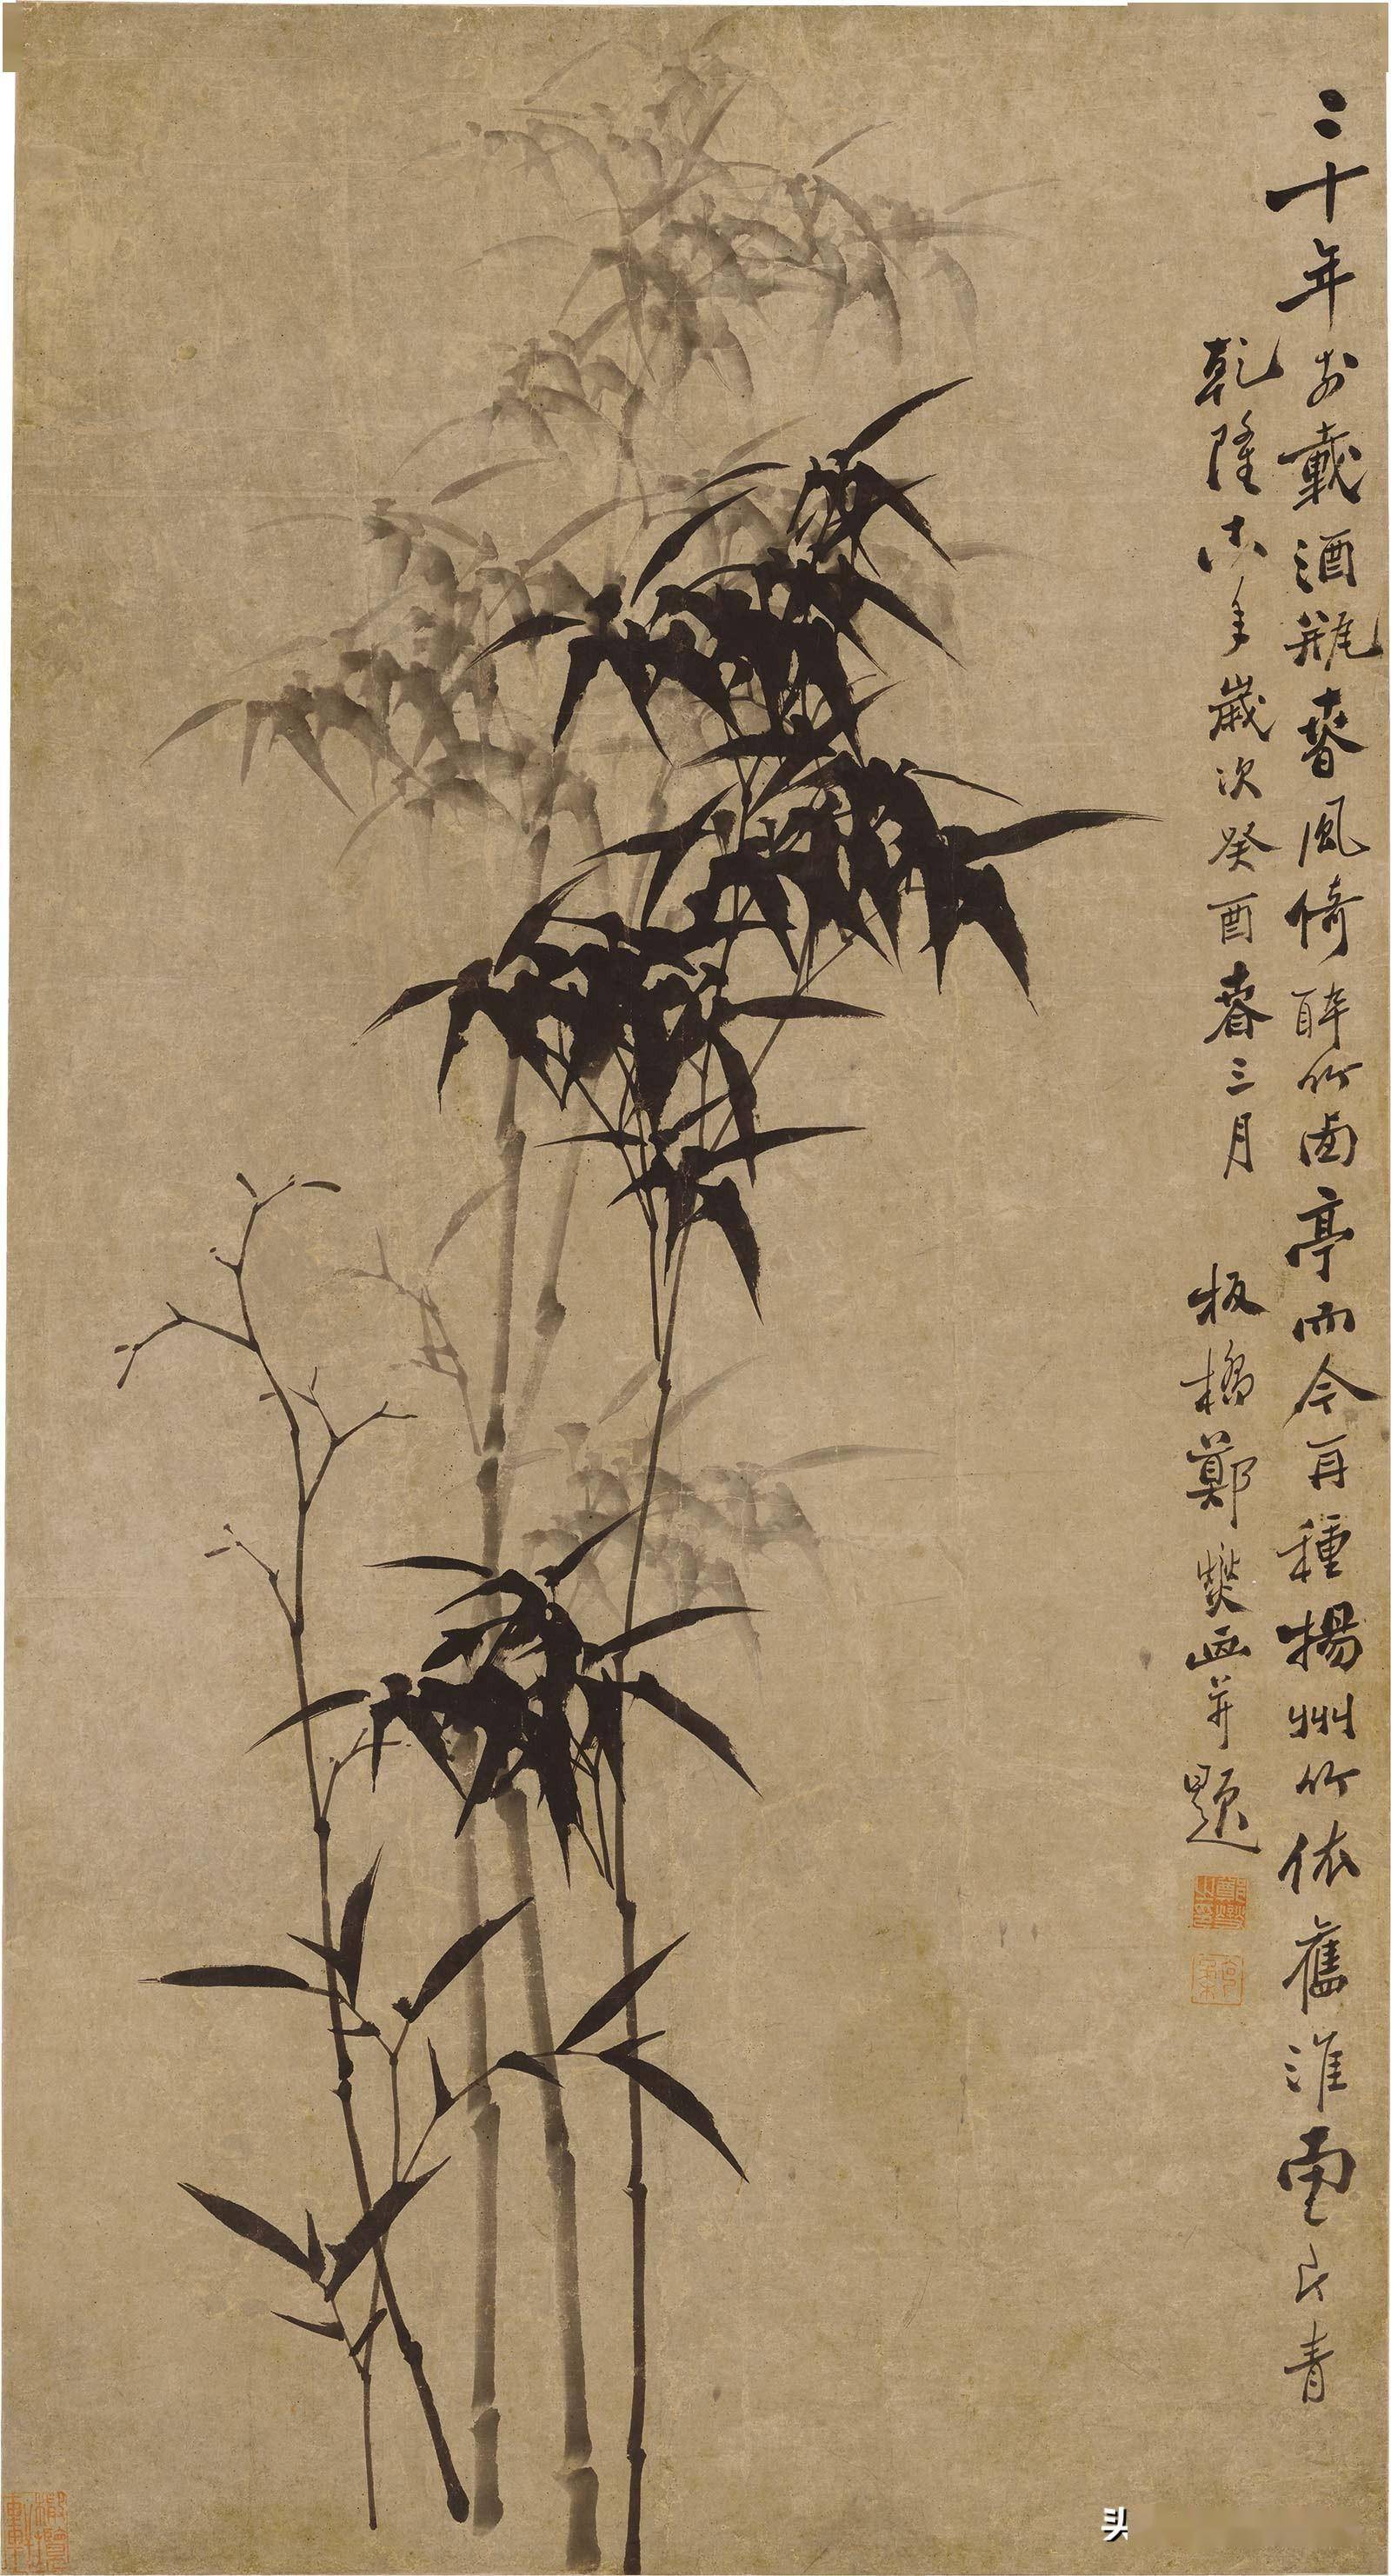 二十年前載酒瓶春風倚醉竹西亭而今再種揚州竹依舊淮南一片青
乾隆十八年歲次癸酉春三月 板橋鄭燮畫并題
鄭燮之印
克柔
头